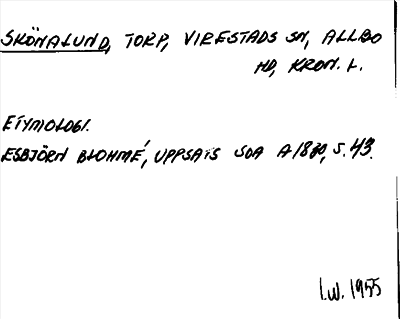 SKÖNALUND, TORP, VIRESTADS SN, ALLBO
HD, KRON. L.
ETYMOLOGI.
ESBJÖRN BLOHMÉ, UPPSATS SOA A 1830, S. 43.
I.W. 1955